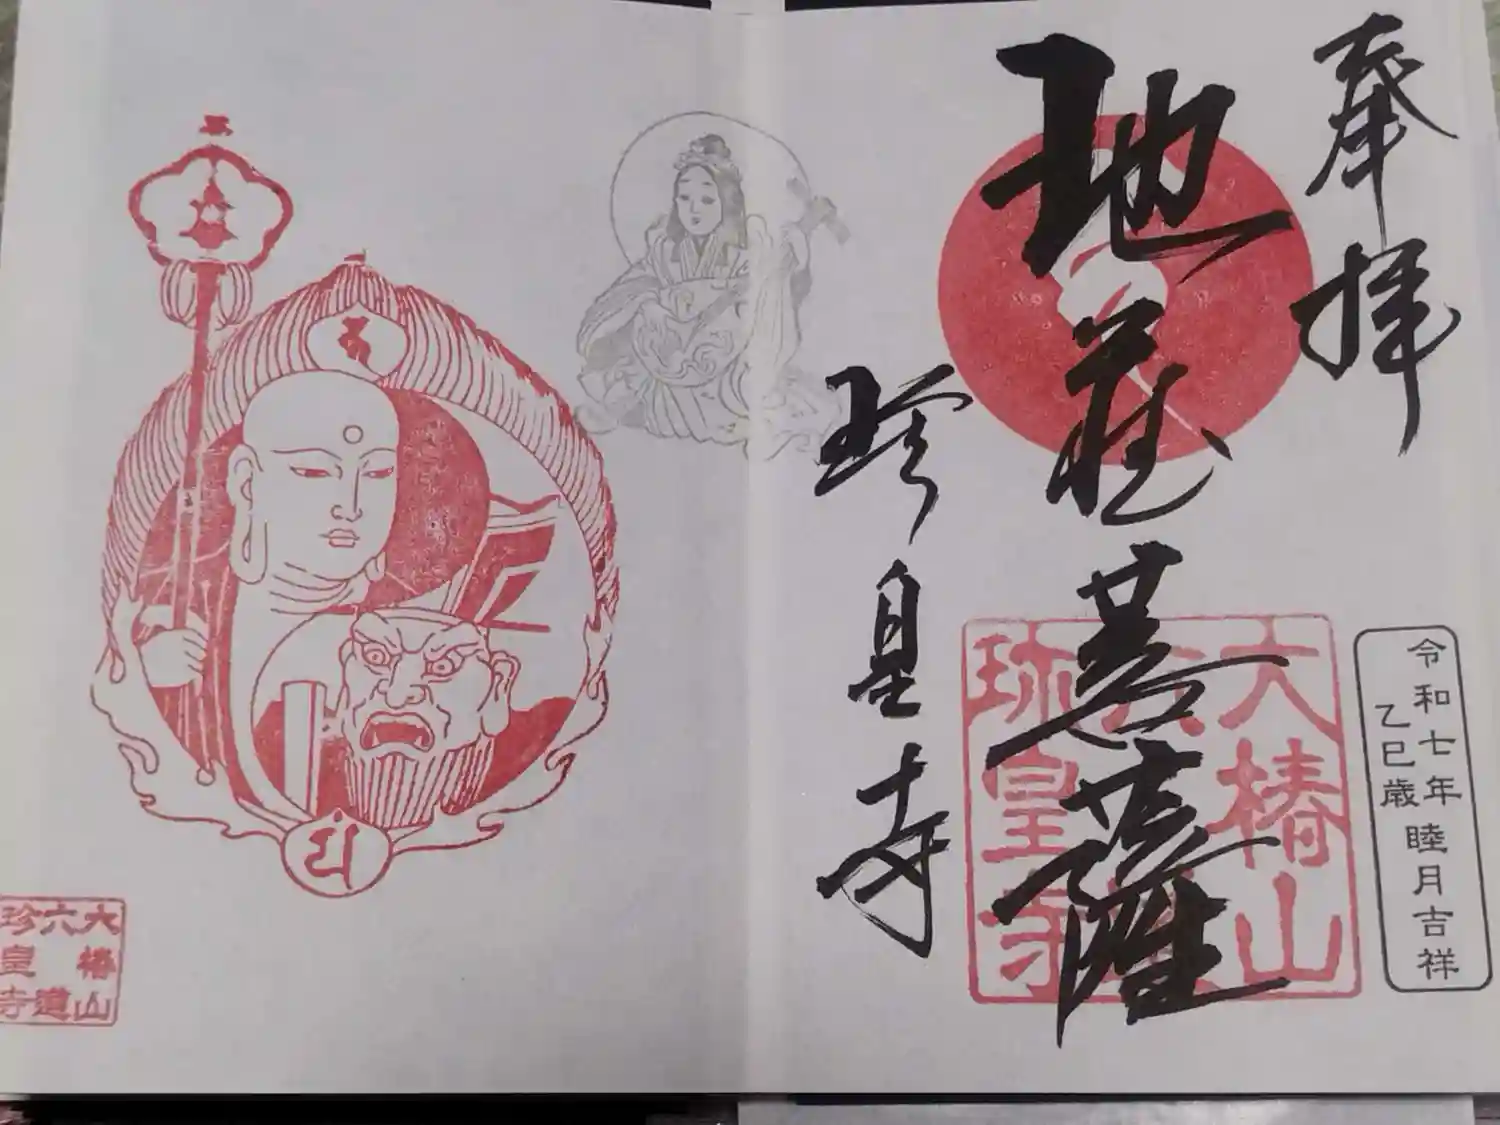 奉拝
地蔵菩薩
珍皇寺
令和七年睦月吉祥
乙巳歳
大椿山
六道
珍皇寺
大椿山
六道
珍皇寺